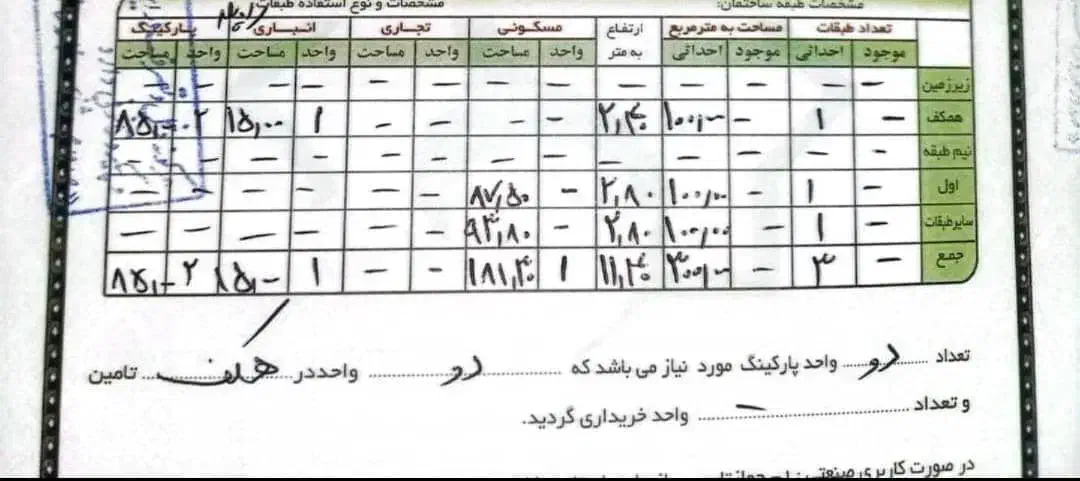 مشخصات طبقه ساختمان: مشخصات و نوع استفاده طبقات
تعداد طبقات مساحت به مترمربع ارتفاع به متر مسکونی تجاری انباری پارکینگ
موجود احداثی موجود احداثی واحد مساحت واحد مساحت واحد مساحت واحد مساحت
زیرزمین — — — — — — — — — — — — —
همکف — ۱ — ۱۰۰,۰۰ ۲,۴۰ — — — — ۱ ۱۵,۰۰ ۲ ۸۵,۰۰
نیم طبقه — — — — — — — — — — — — —
اول — ۱ — ۱۰۰,۰۰ ۲,۸۰ — ۸۷,۵۰ — — — — — —
سایرطبقات — ۱ — ۱۰۰,۰۰ ۲,۸۰ — ۹۳,۸۰ — — — — — —
جمع — ۳ — ۳۰۰,۰۰ ۱۱,۴۰ ۱ ۱۸۱,۳۰ — — ۱ ۱۵,۰۰ ۲ ۸۵,۰۰
تعداد دو واحد پارکینگ مورد نیاز می باشد که دو واحد در همکف تامین
و تعداد — واحد خریداری گردید.
در صورت کاربری صنعتی